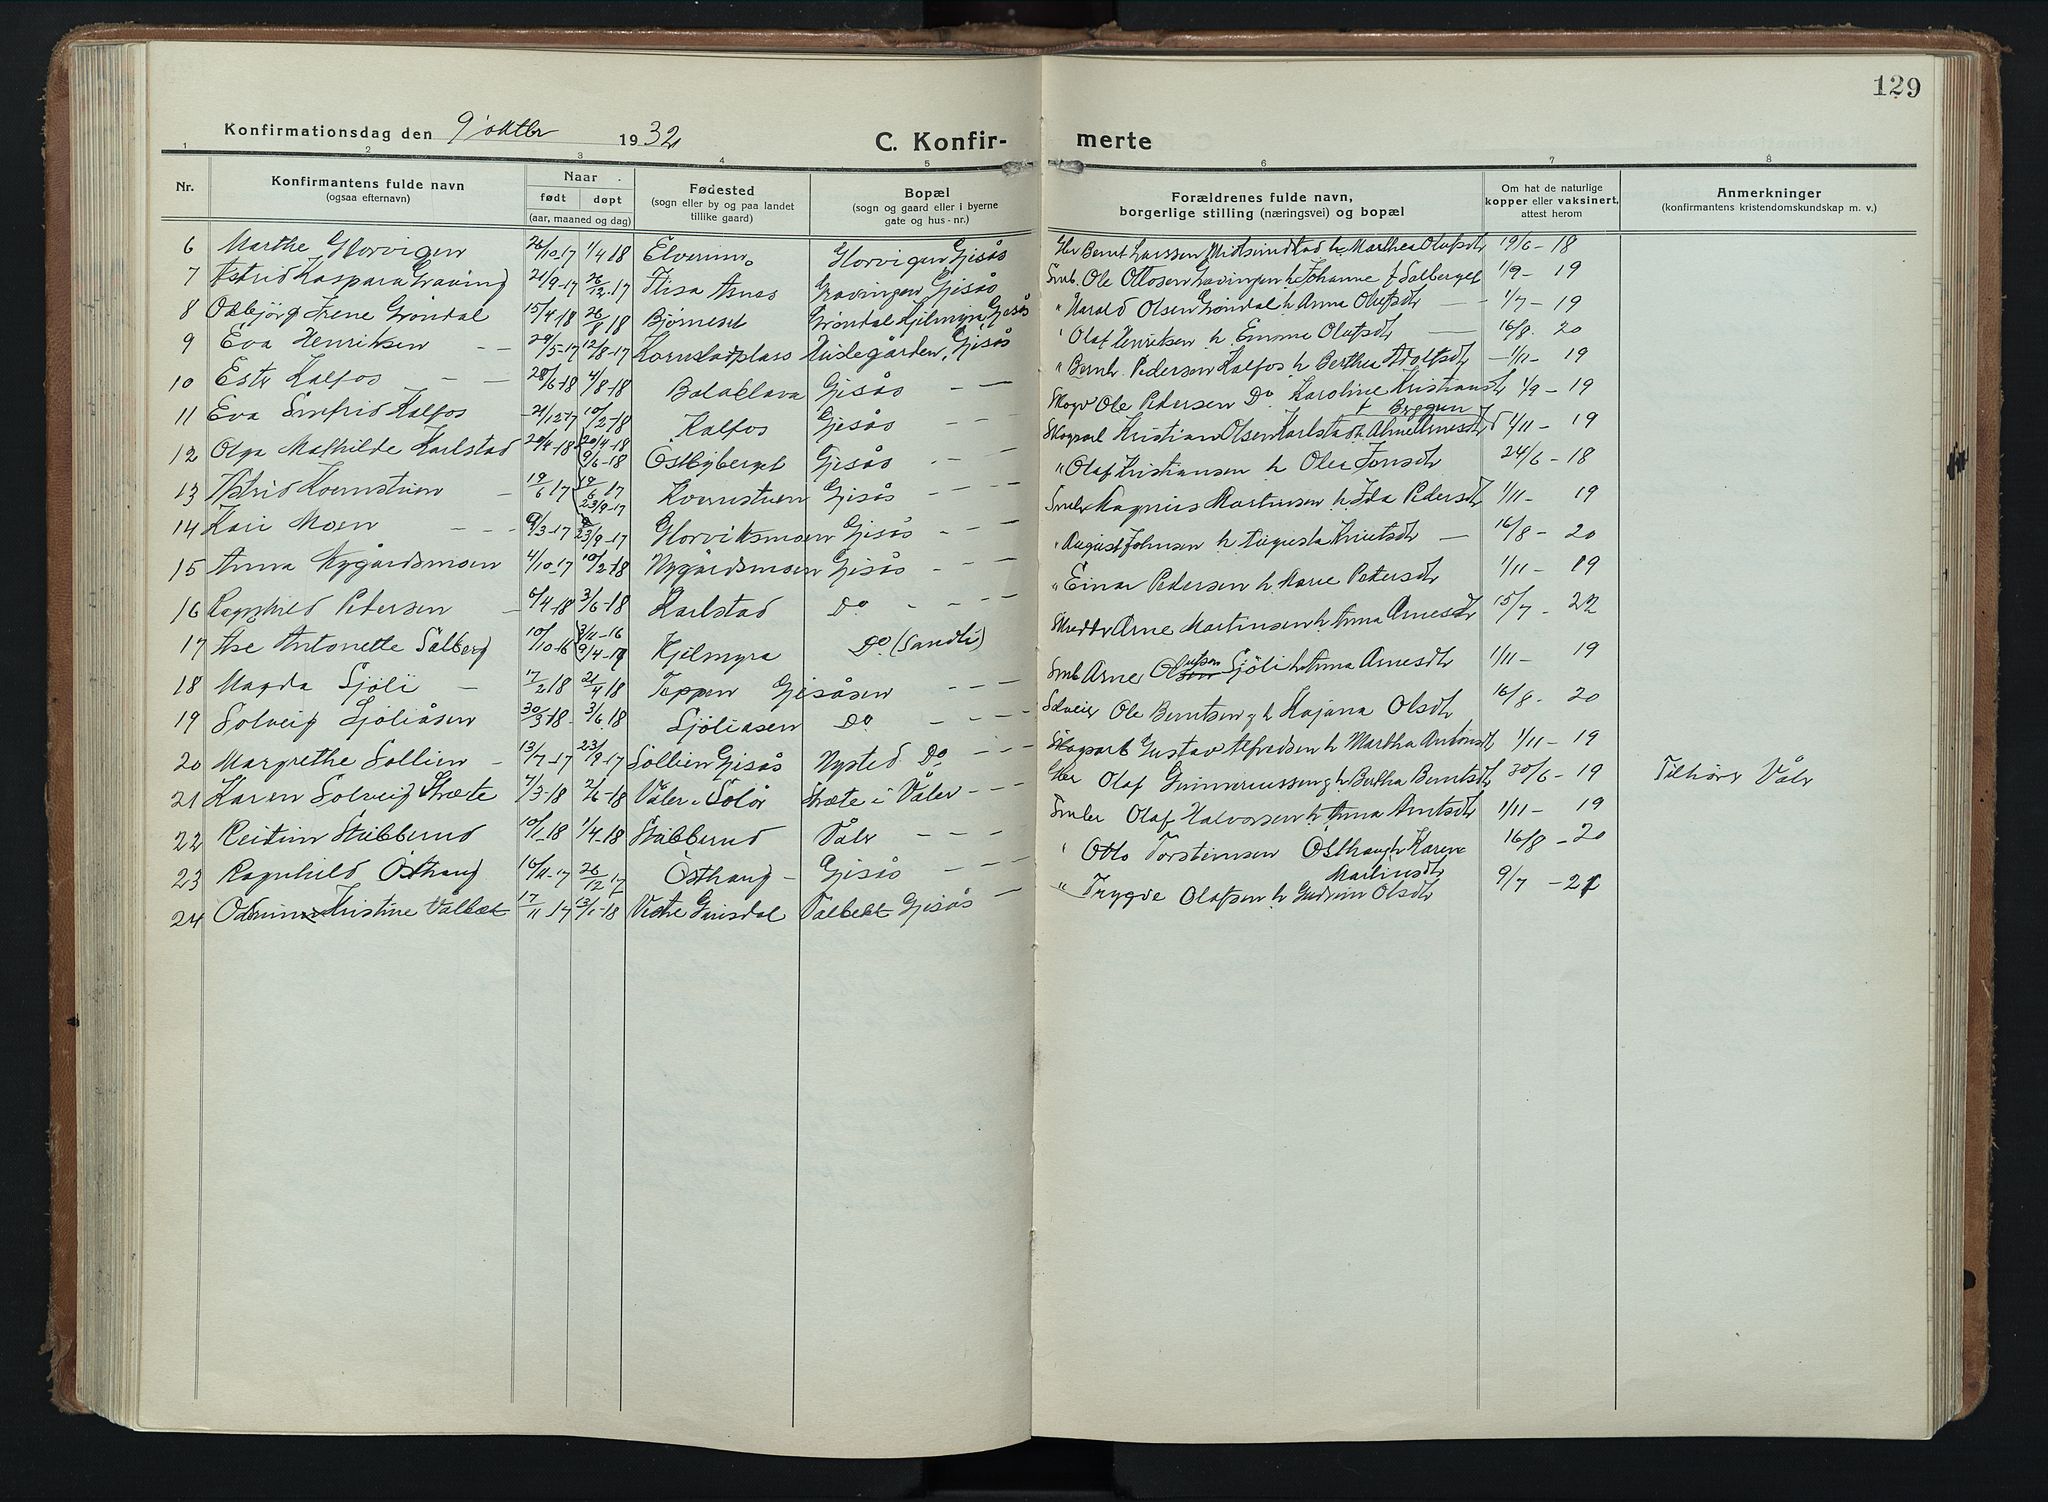 129
Konfirmationsdag den 9 oktbr 1932
C. Konfir- merte
1 2 3 4 5 6 7 8
Nr. Konfirmantens fulde navn (ogsaa efternavn) Naar født døpt (aar, maaned og dag) Fødested (sogn eller by og paa landet tillike gaard) Bopæl (sogn og gaard eller i byerne gate og hus-nr.) Forældrenes fulde navn, borgerlige stilling (næringsvei) og bopæl Om hat de naturlige kopper eller vaksinert, attest herom Anmerkninger (konfirmantens kristendomskundskap m. v.)
6 Marthe Glorvigen 26/10-17 1/4 18 Elverum Glorvigen Gjesås Bernt Larssen Midtsundstad h Marthea Olafsdtr 19/6-18
7 Astrid Kaspara Graving 21/9-17 26/12-17 Flisa Åsnes Gravingen Gjesås Smb. Ole Ottosen Gravingen h Johanne f Solberget 1/9-19
8 Oddbjørg Irene Grøndal 15/4-18 26/8 18 Bjørneset Grøndal Kjelmyra, Gjesås " Harald Olsen Grøndal h Anna Olufsdtr 1/7-19
9 Eva Henriksen 29/5-17 12/8-17 Kornstadplass Gjesås " Olaf Henriksen h. Emma Olafsdtr 16/8-20
10 Estr Kalfos 28/6-18 4/8-18 Balaklava Gjesås " Bernh. Pedersen Kalfos h Berthea Adolfsdtr 1/11-19
11 Eva Snefrid Kalfos 21/12-17 10/2-18 Kalfos Gjesås Ole Pedersen Do Karoline Kristiansdtr 1/9-19
12 Olga Mathilde Karlstad 20/4-18 20/4-18 9/6-18 Østbyberget Gjesås Kristian Olsen Karlstad h 1/11-19
13 Astrid Kvernstuen 19/6 17 19/6 17 23/9-17 Kvernstuen Gjesås " Olaf Kristiansen h Olea Jonsdtr 24/6-18
14 Kari Moen 9/3-17 23/9-17 Glorviksmoen Gjesås Magnus Martinsen h Ida Pedersdtr 1/11-19
15 Anna Nygårdsmoen 4/10-17 10/2-18 Nygårdsmoen Gjesås " August Johnsen h Augusta Knutsdtr 16/8-20
16 Ragnhild Pedersen 6/4-18 3/6-18 Karlstad Do " Einar Pedersen h Marie Petersdtr 1/11-19
17 Åse Antonette Solberg 10/10-16 Kjelmyra Do (Sandli) Arne Martinsen h. Anna Arnesdtr 15/7-22
18 Magda Sjøli 17/2 18 21/4 18 Toppen Gjesåsen Smb Arne Olufsen Sjøli h Anna Arnesdtr 1/11-19
19 Solveig Sjøliåsen 30/3-18 3/6-18 Sjøliåsen Do Ole Berntsen h Kajana Olsdtr 16/8-20
20 Margrethe Sollien 13/7-17 23/9-17 Sollien Gjesås Nysted Do Gustav Alfredsen h Martha Antonsdtr 1/11-19
21 Karen Solveig Stræte 7/3-18 2/6-18 Våler i Solør Stræte i Våler Olaf Gunneriussen h. Bertha Berntsdtr 30/6-19 Tilhører Våler
22 Reidun Stubberud 10/1-18 1/4-18 Stubberud Våler Olaf Halvorsen h Anna Arntsdtr 1/11-19
23 Ragnhild Østhaug 16/11-17 26/12 17 Østhaug Gjesås " Otto Torsteinsen Østhaug h Karen Martinsdtr 16/8-20
24 Kristine Vålbekk 17/11 17 13/1-18 Vestre Gausdal Vålbekk Gjesås " Trygve Olafsen h Gudrun Olsdtr 9/7-21